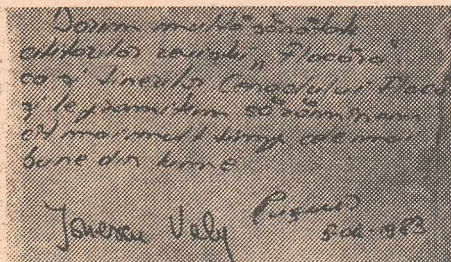 Dorim multă sănătate
cititorilor revistei „Flacăra",
ca și tinerilor Cenaclului Flacă
și le promitem să rămînem
cît mai mult timp cele mai
bune din lume
Ionescu Valy
1983